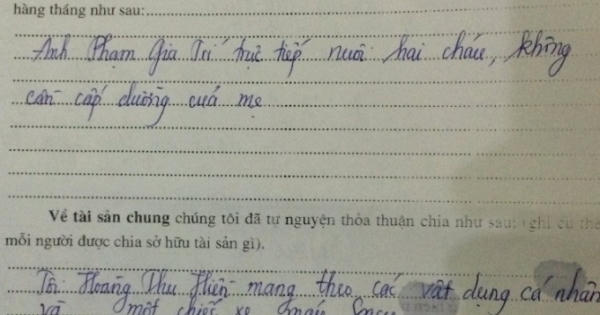 hàng tháng như sau:
Anh Phạm Gia Trí trực tiếp nuôi hai cháu, không
cần cấp dưỡng của mẹ
Về tài sản chung chúng tôi đã tự nguyện thỏa thuận chia như sau: (ghi cụ thể
mỗi người được chia sở hữu tài sản gì).
Tôi Hoàng Thu Hiền mang theo các vật dụng cá nhân
và một chiếc xe máy